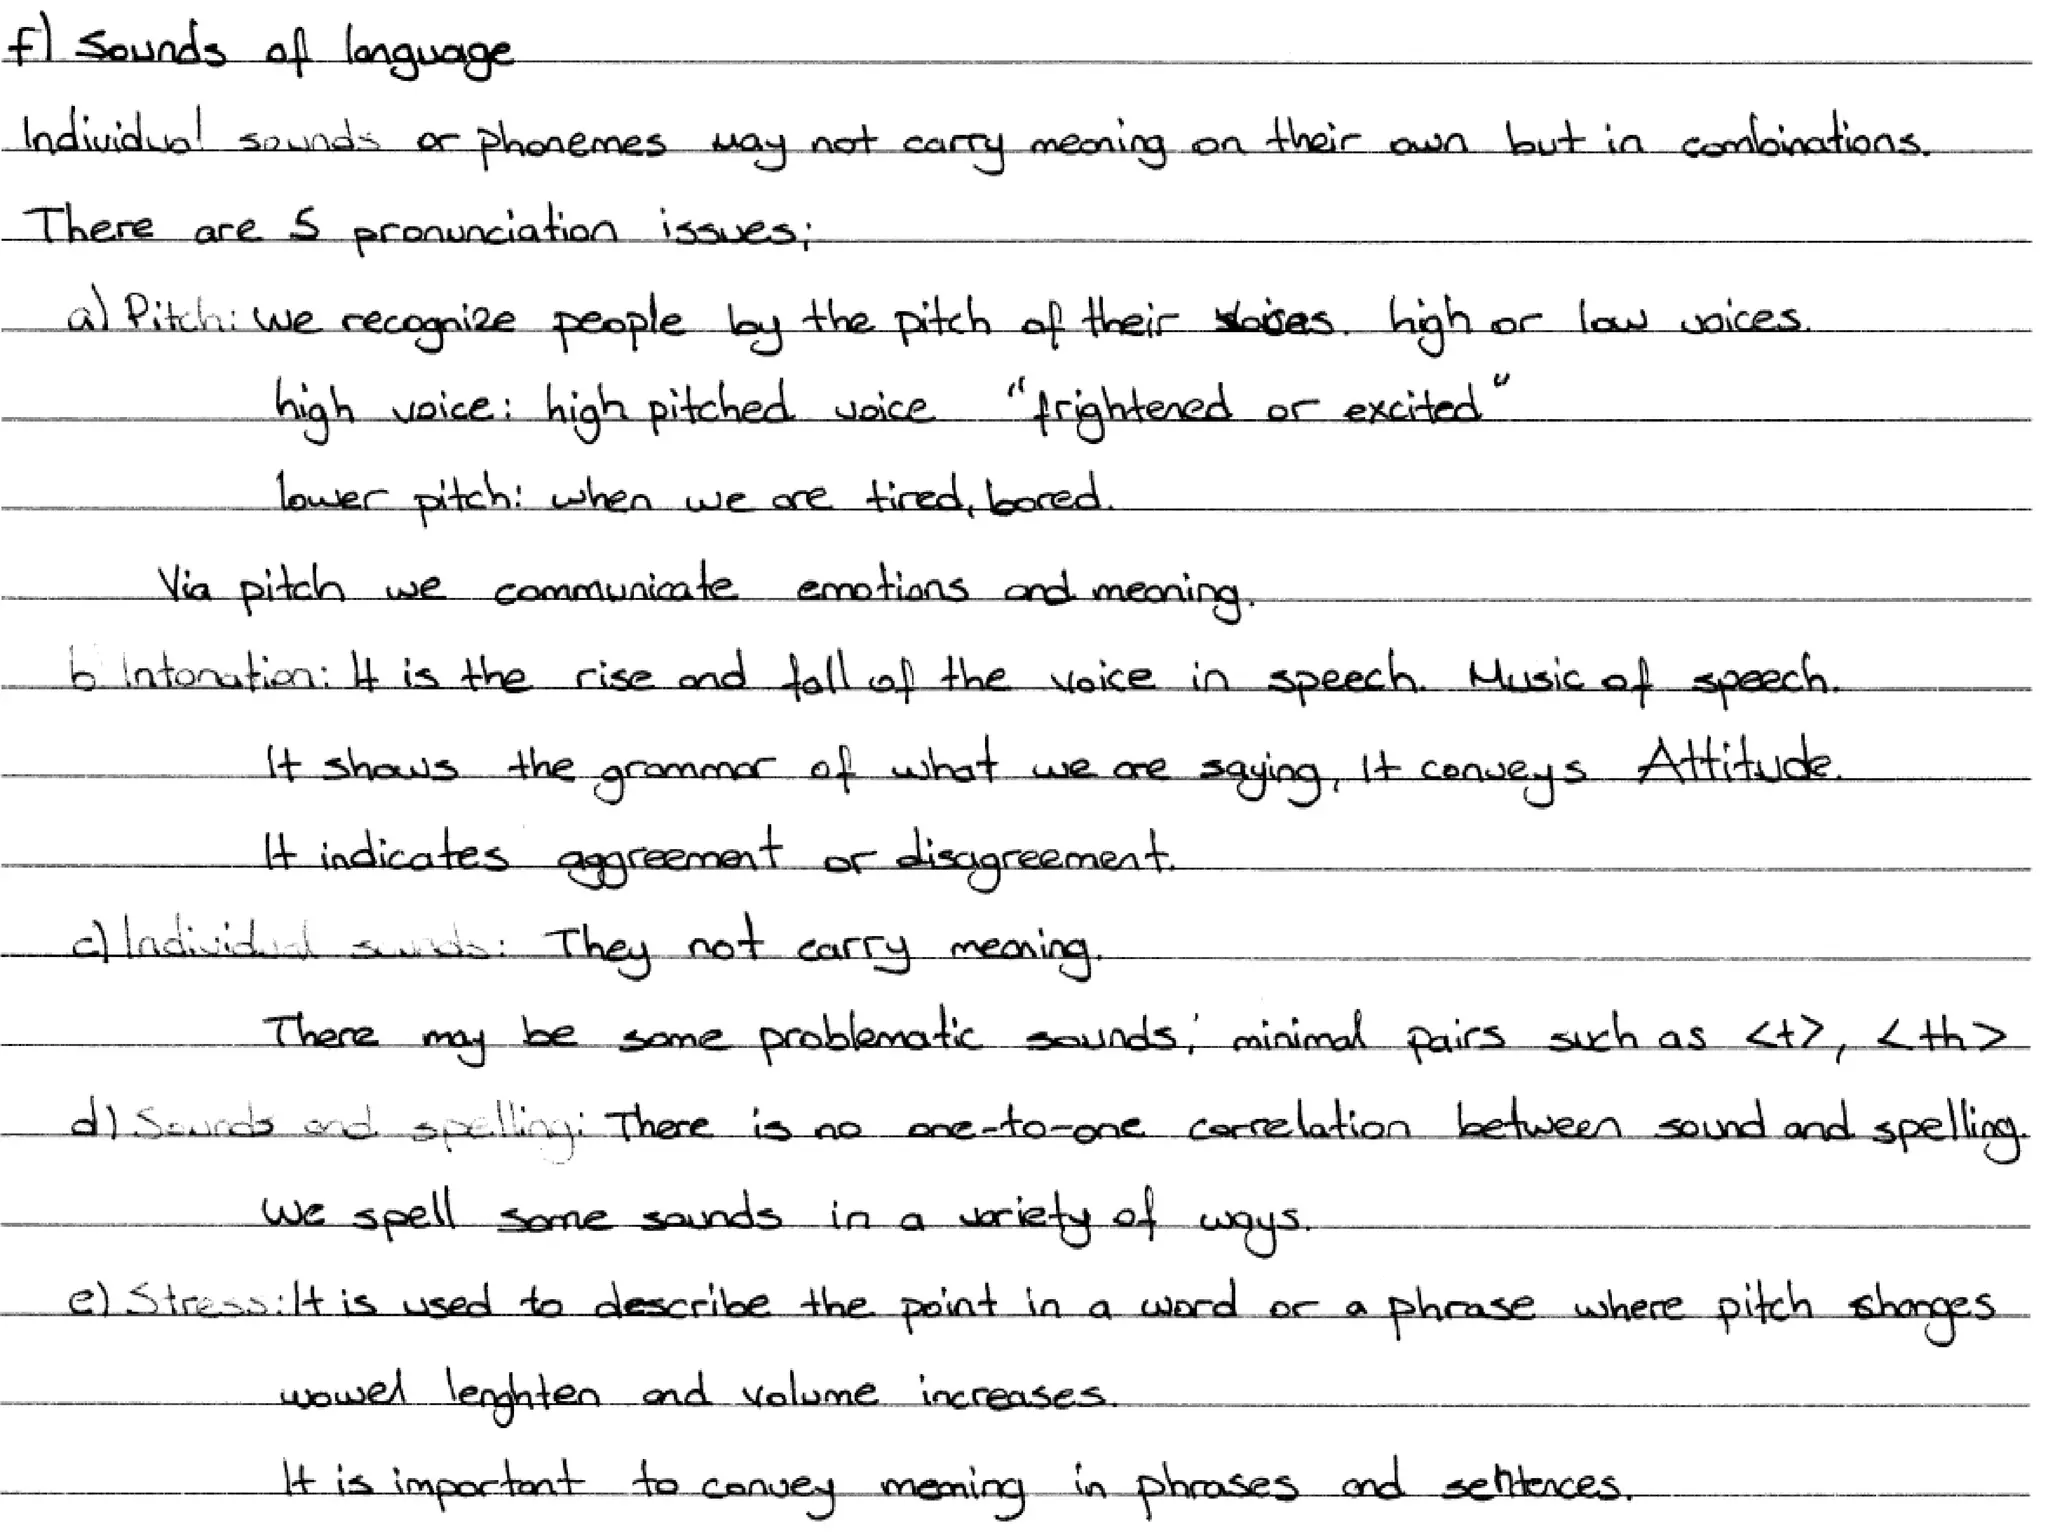 f) Sounds of language
Individual sounds or phonemes may not carry meaning on their own but in combinations.
There are 5 pronunciation issues;
a) Pitch: We recognize people by the pitch of their voices. high or low voices.
high voice: high pitched voice "frightened or excited"
lower pitch: when we are tired, bored.
Via pitch we communicate emotions and meaning.
b Intonation: It is the rise and fall of the voice in speech. Music of speech.
It shows the grammar of what we are saying, It conveys Attitude.
It indicates aggreement or disagreement.
c) Individual sounds: They not carry meaning.
There may be some problematic sounds; minimal pairs such as <t>, <th>
d) Sounds and spelling: There is no one-to-one correlation between sound and spelling.
We spell some sounds in a variety of ways.
e) Stress: It is used to describe the point in a word or a phrase where pitch changes
wowel lenghten and volume increases.
It is important to convey meaning in phrases and sentences.